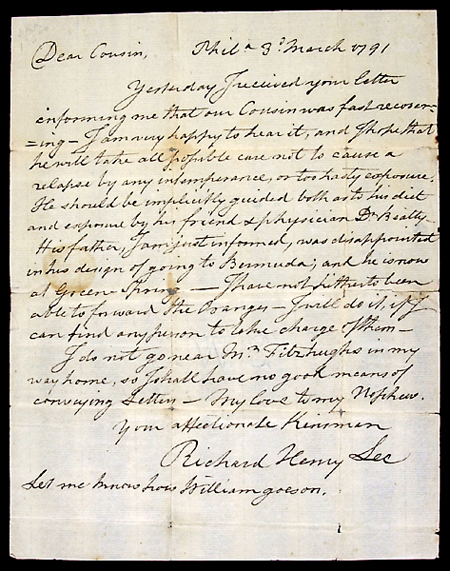 Dear Cousin, Phila 3d March 1791
Yesterday I received your letter
informing me that our Cousin was fast recover=
=ing – I am very happy to hear it, and I hope that
he will take all possible care not to cause a
relapse by any intemperance, or too hasty exposure,
He should be implicitly guided both as to his diet
and exposure by his friend & physician Dr Beatty
His father, I am just informed, was disappointed
in his design of going to Bermuda; and he is now
at Green Spring – I have not hitherto been
able to forward the Oranges – I will do it, if I
can find any person to take charge of them –
I do not go near Mr Fitzhughs in my
way home, so I shall have no good means of
conveying Letters – My love to my Nephew.
Your affectionate Kinsman
Richard Henry Lee
Let me know how William goes on.